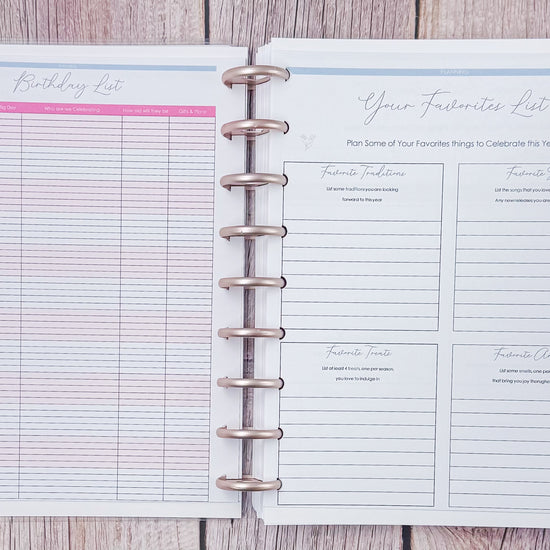 Birthday List
Who are we Celebrating
How old will they be
Gifts & Plans
PLANNING
Your Favorites List
Plan Some of Your Favorites things to Celebrate this Ye
Favorite Traditions
List some traditions you are looking
forward to this year
List the songs that you love
Any new releases you are
Favorite Treats
List at least 4 treats, one per season,
you love to indulge in
Favorite
List some smells, one per
that bring you joy throughou